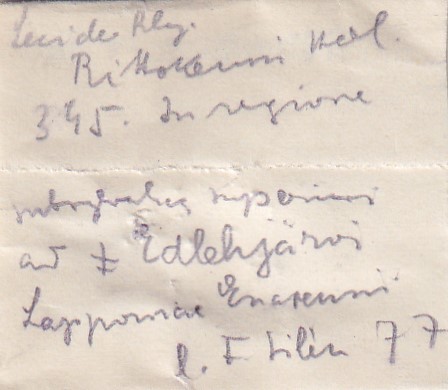 Lecidea Rhy.
Rittokensis Hel.
345. In regione
subsylvatica superiori
ad Edlehjärvi
Lapponiae Enarensis
l. F Silén 77